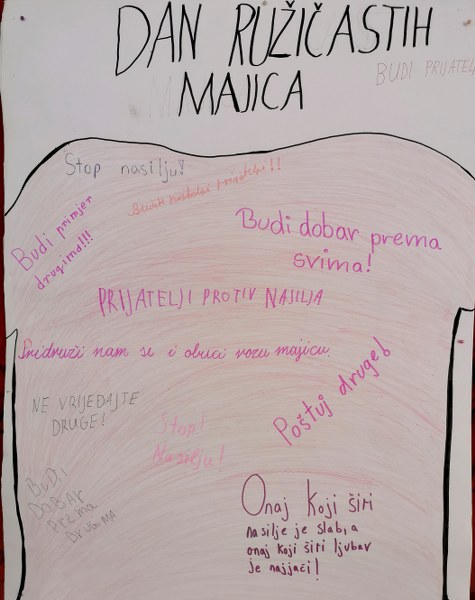 DAN RUŽIČASTIH
MAJICA
BUDI PRIJATELJ
Stop nasilju!
Budi primjer
drugima!!!
Budi dobar prema
svima!
PRIJATELJI PROTIV NASILJA
Pridruži nam se i obuci rozu majicu.
NE VRIJEĐAJTE
DRUGE!
Poštuj druge!
Stop!
Nasilju!
BUDI
DOBAR
PREMA
DRUGIMA
Onaj koji širi
nasilje je slab, a
onaj koji širi ljubav
je najjači!